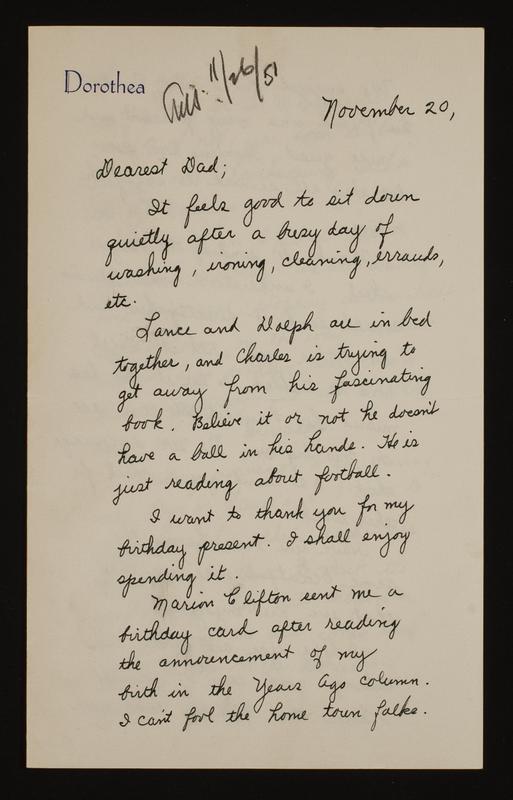 Dorothea
11/26/51
November 20,
Dearest Dad;
It feels good to sit down
quietly after a busy day of
washing, ironing, cleaning, errands,
etc.
Lance and Dolph are in bed
together, and Charles is trying to
get away from his fascinating
book. Believe it or not he doesn't
have a ball in his hands. He is
just reading about football.
I want to thank you for my
birthday present. I shall enjoy
spending it.
Marion Clifton sent me a
birthday card after reading
the announcement of my
birth in the Years Ago column.
I can't fool the home town folks.